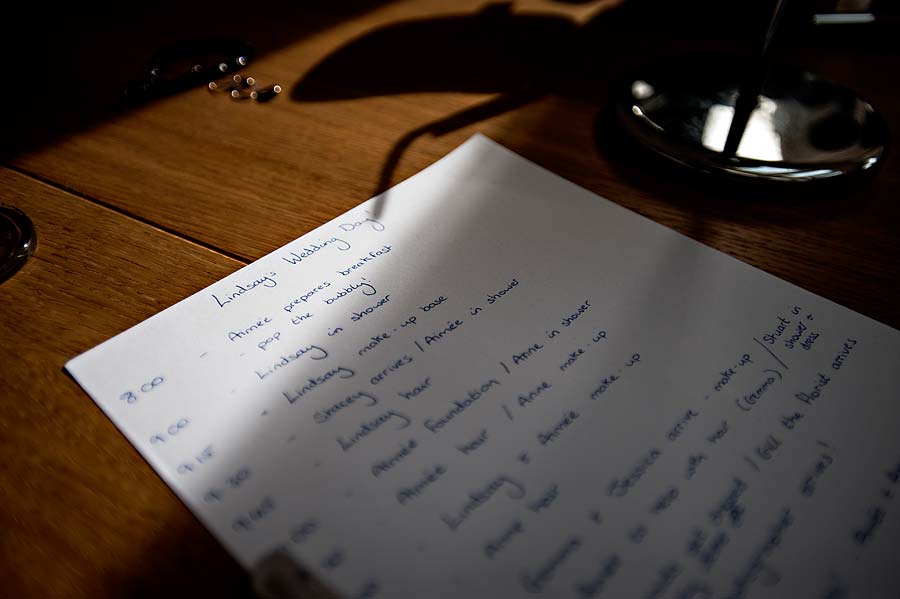 Lindsay's Wedding Day!
8:00 - Aimée prepares breakfast
- pop the bubbly!
9:00 - Lindsay in shower
9:15 - Lindsay make-up base
9:30 - Stacey arrives / Aimée in shower
9:45 - Lindsay hair
:00 - Aimée foundation / Anne in shower
:30 - Aimée hair / Anne make-up
Lindsay + Aimée make-up
Anne hair
Gemma + Jessica arrive - make-up / Stuart in shower + dress
to help with hair (Gemma)
get dressed / Gill the florist arrives
photographer arrives!